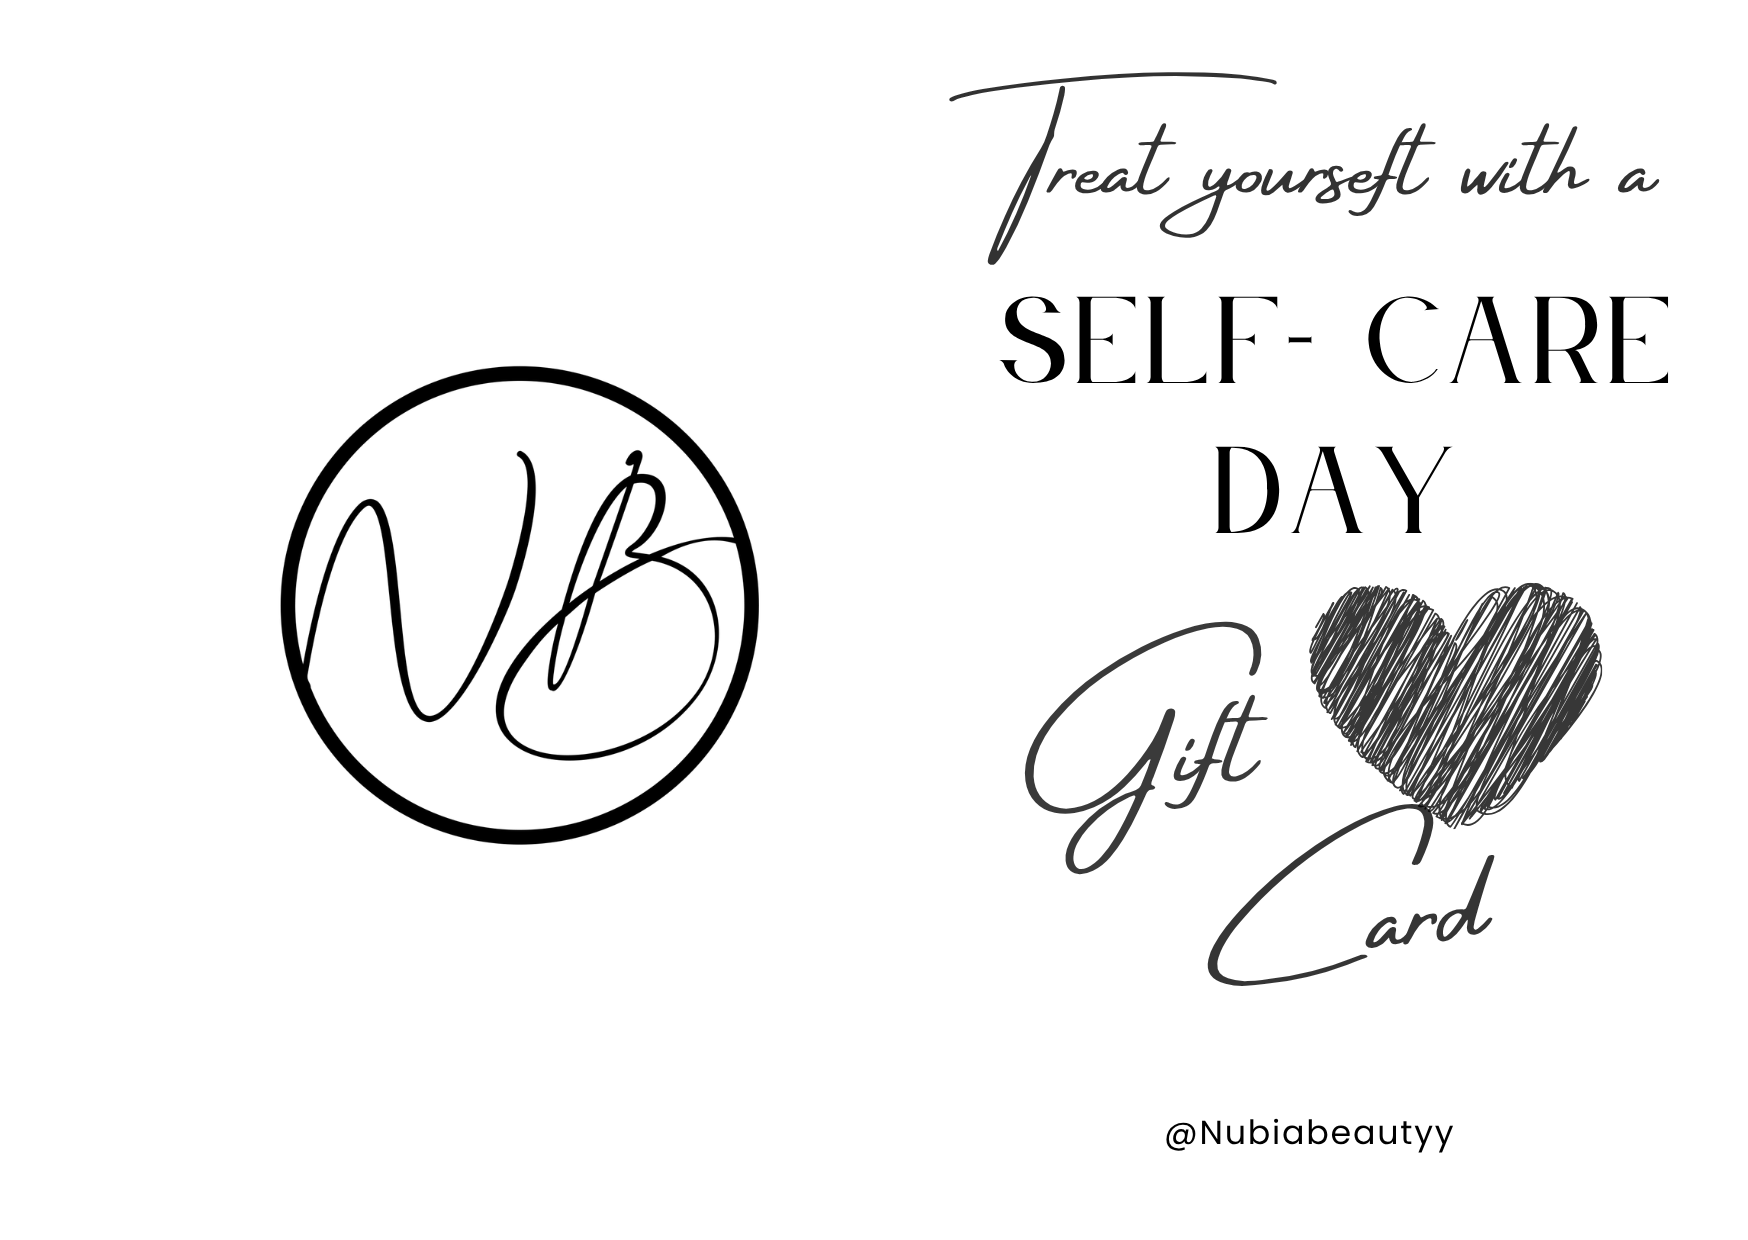 NB
Treat yourseft with a
SELF- CARE
DAY
Gift
Card
@Nubiabeautyy